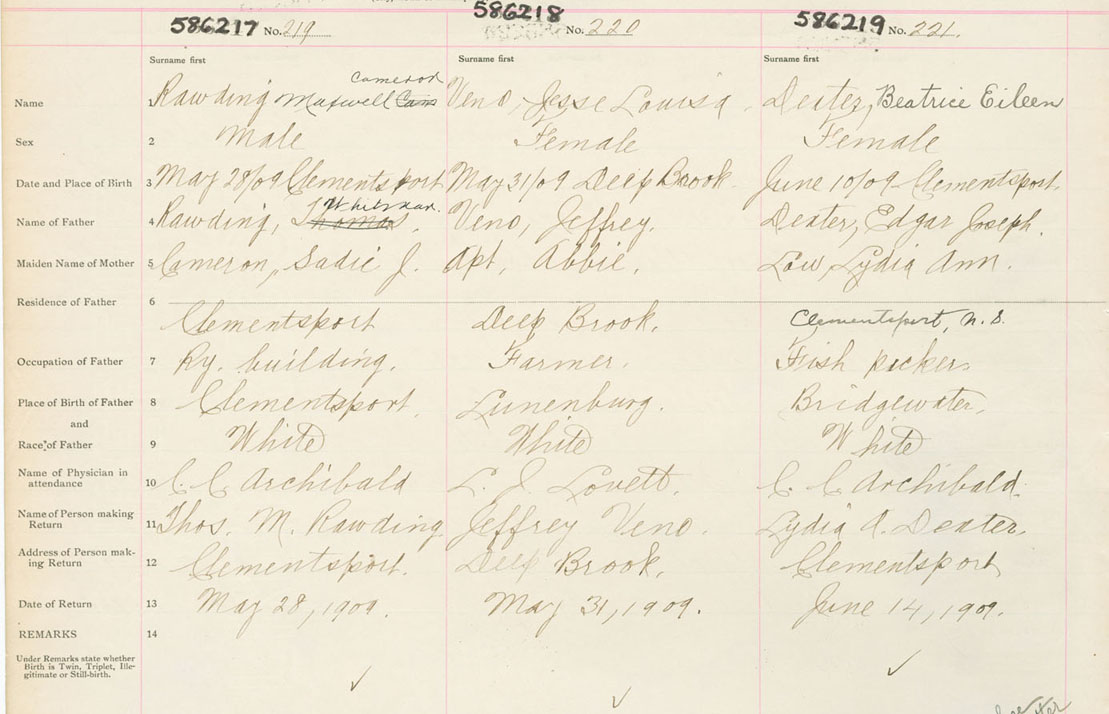 586217 No. 219 586218 No. 220 586219 No. 221.
Surname first Surname first Surname first
Cameron
Name 1 Rawding Maxwell Cam Veno, Jesse Louisa. Dexter, Beatrice Eileen
Sex 2 Male Female Female
Date and Place of Birth 3 May 28/09 Clementsport May 31/09 Deep Brook. June 10/09 Clementsport.
Whitman.
Name of Father 4 Rawding, Thomas. Veno, Jeffrey. Dexter, Edgar Joseph.
Maiden Name of Mother 5 Cameron, Sadie J. Apt, Abbie. Low, Lydia Ann.
Residence of Father 6
Clementsport Deep Brook. Clementsport, N.S.
Occupation of Father 7 Ry. building. Farmer. Fish
Place of Birth of Father 8 Clementsport. Lunenburg. Bridgewater.
and
Race of Father 9 White White White
Name of Physician in
attendance 10 C. C. Archibald L. J. Lovett. C. C. Archibald.
Name of Person making
Return 11 Thos. M. Rawding Jeffrey Veno. Lydia A. Dexter.
Address of Person mak-
ing Return 12 Clementsport. Deep Brook. Clementsport
Date of Return 13 May 28, 1909. May 31, 1909. June 14, 1909.
REMARKS 14
Under Remarks state whether
Birth is Twin, Triplet, Ille-
gitimate or Still-birth.